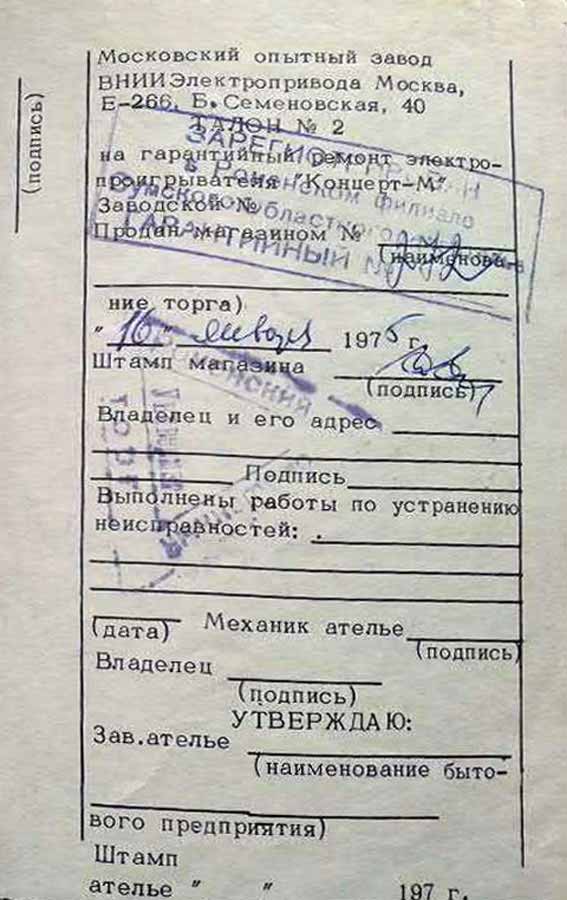 (подпись)
Московский опытный завод
ВНИИЭлектропривода Москва,
Е-266, Б. Семеновская, 40
ТАЛОН № 2
ЗАРЕГИСТРИРОВАН
на гарантийный ремонт электро-
в Роменском филиале
проигрывателя "Концерт-М".
Сумского областного
Заводской №
ГАРАНТИЙНЫЙ №
Продан магазином №
(наименова-
ние торга)
"16" января 1975 г.
Штамп магазина
(подпись)
Роменский
Владелец и его адрес
Подпись
Выполнены работы по устранению
неисправностей:
(дата) Механик ателье
(подпись)
Владелец
(подпись)
УТВЕРЖДАЮ:
Зав.ателье
(наименование быто-
вого предприятия)
Штамп
ателье " " 197 г.